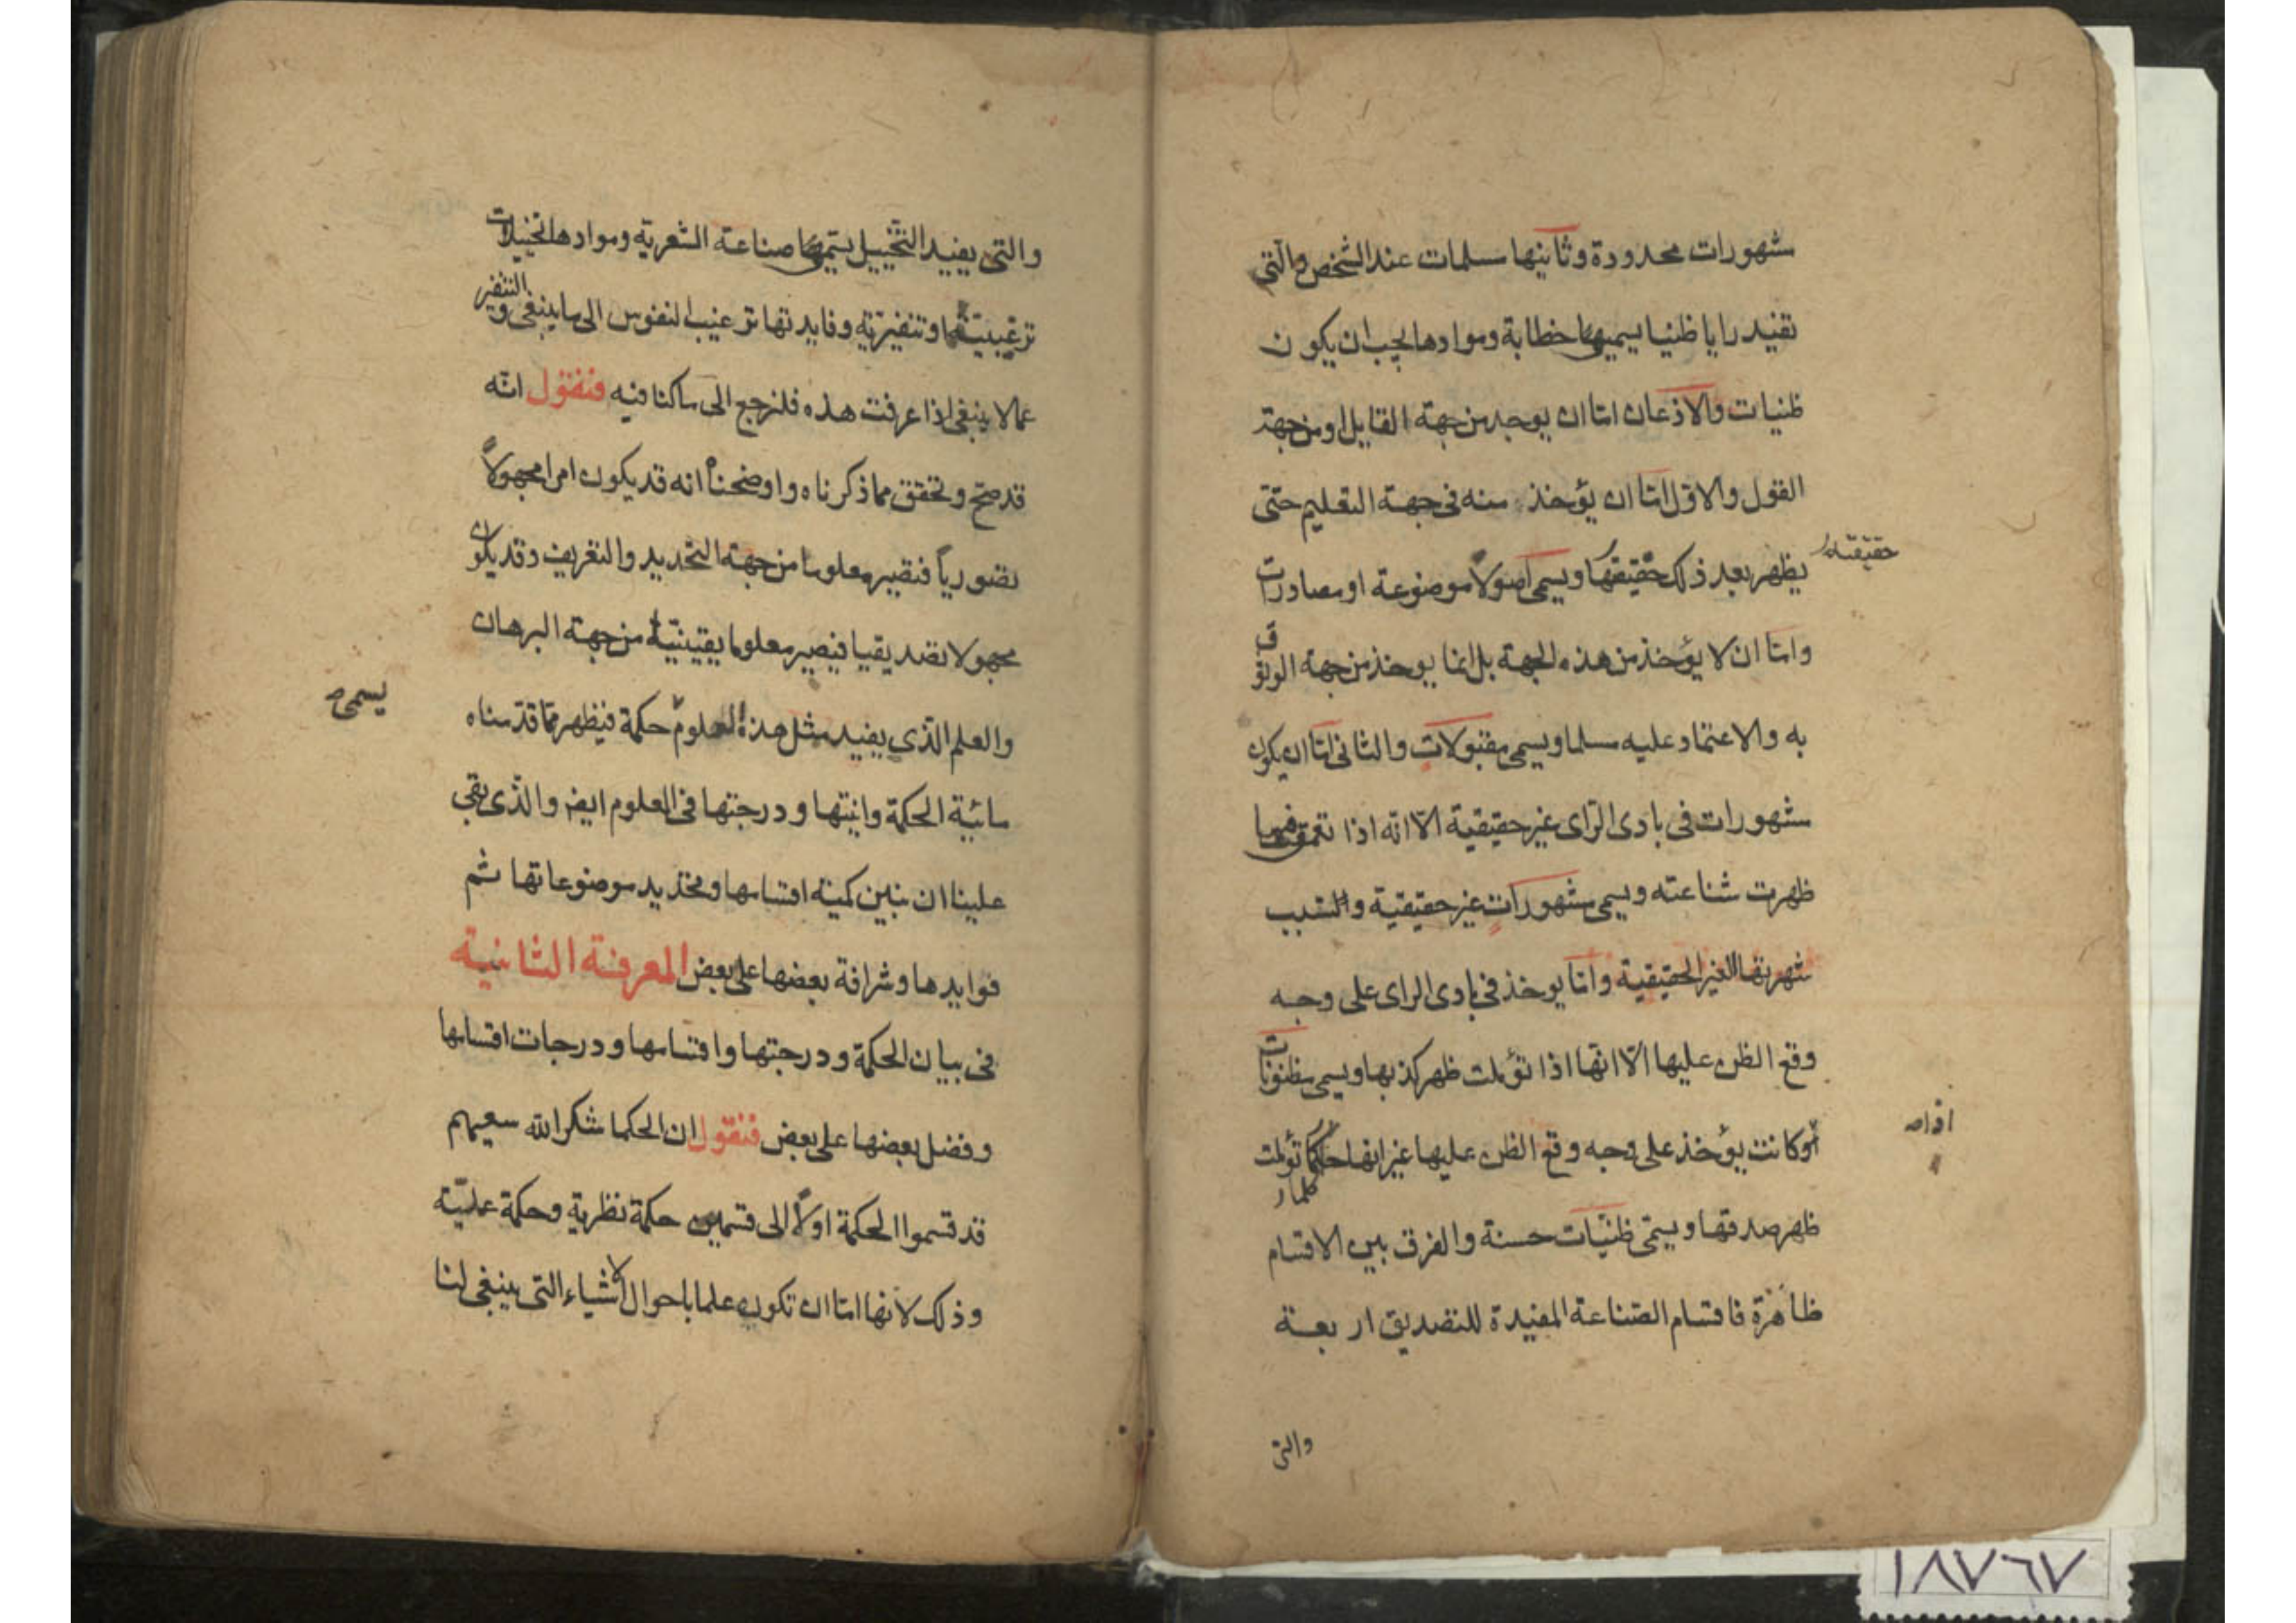 مشهورات محدودة وثانيها مسلمات عند الشخص والتى
تفيد رايا ظنيا يسميها خطابة وموادها يجب ان يكون
ظنيات والاذعان اما ان يوجد من جهة القايل او من جهة
القول والاول اما ان يؤخذ منه فى جهة التعليم حتى
يظهر بعد ذلك حقيقتها ويسمى اصولاً موضوعة او مصادرات
حقيقته
واما ان لا يؤخذ من هذه الجهة بل انما يوخذ من جهة الوثوق
به والاعتماد عليه مسلما ويسمى مقبولات والثانى اما ان يكون
مشهورات فى بادى الراى غير حقيقية الا انه اذا تعمق فيها
ظهرت شناعته ويسمى مشهورات غير حقيقية والسبب
شهرتها الغير الحقيقية واما يوخذ فى بادى الراى على وجه
وقع الظن عليها الا انها اذا تؤملت ظهر كذبها ويسمى مظنونات
أو كانت يؤخذ على وجه وقع الظن عليها غير انها كلما تؤملت
كلما
ظهر صدقها ويسمى ظنيّات حسنة والفرق بين الاقسام
ظاهرة فاقسام الصناعة المفيدة للتصديق اربعة
والتى
والتى يفيد التخييل يسميها صناعة الشعرية وموادها تخييلات
ترغيبية وتنفيرية وفايدتها ترغيب النفوس الى ما ينبغى والتنفير
عما لا ينبغى اذا عرفت هذه فلنرجع الى ما كنا فيه فنقول انه
قد صح وتحقق مما ذكرناه واوضحنا انه قد يكون امرا مجهولاً
تصورياً فتصير معلوما من جهة التحديد والتعريف وقد يكون
مجهولا تصديقيا فيصير معلوما يقينية من جهة البرهان
والعلم الذى يفيد مثل هذه العلوم حكمة فيظهر مما قدمناه
يسمى
مائية الحكمة وانيتها ودرجتها فى العلوم ايضا والذى بقى
علينا ان نبين كمية اقسامها وتحديد موضوعاتها ثم
فوايدها وشرافة بعضها على بعض المعرفة الثانية
فى بيان الحكمة ودرجتها واقسامها ودرجات اقسامها
وفضل بعضها على بعض فنقول ان الحكما شكر الله سعيهم
قد قسموا الحكمة اولاً الى قسمين حكمة نظرية وحكمة عمليّة
وذلك لانها اما ان تكون علما باحوال الاشياء التى ينبغى لنا
١٨٧٦٧